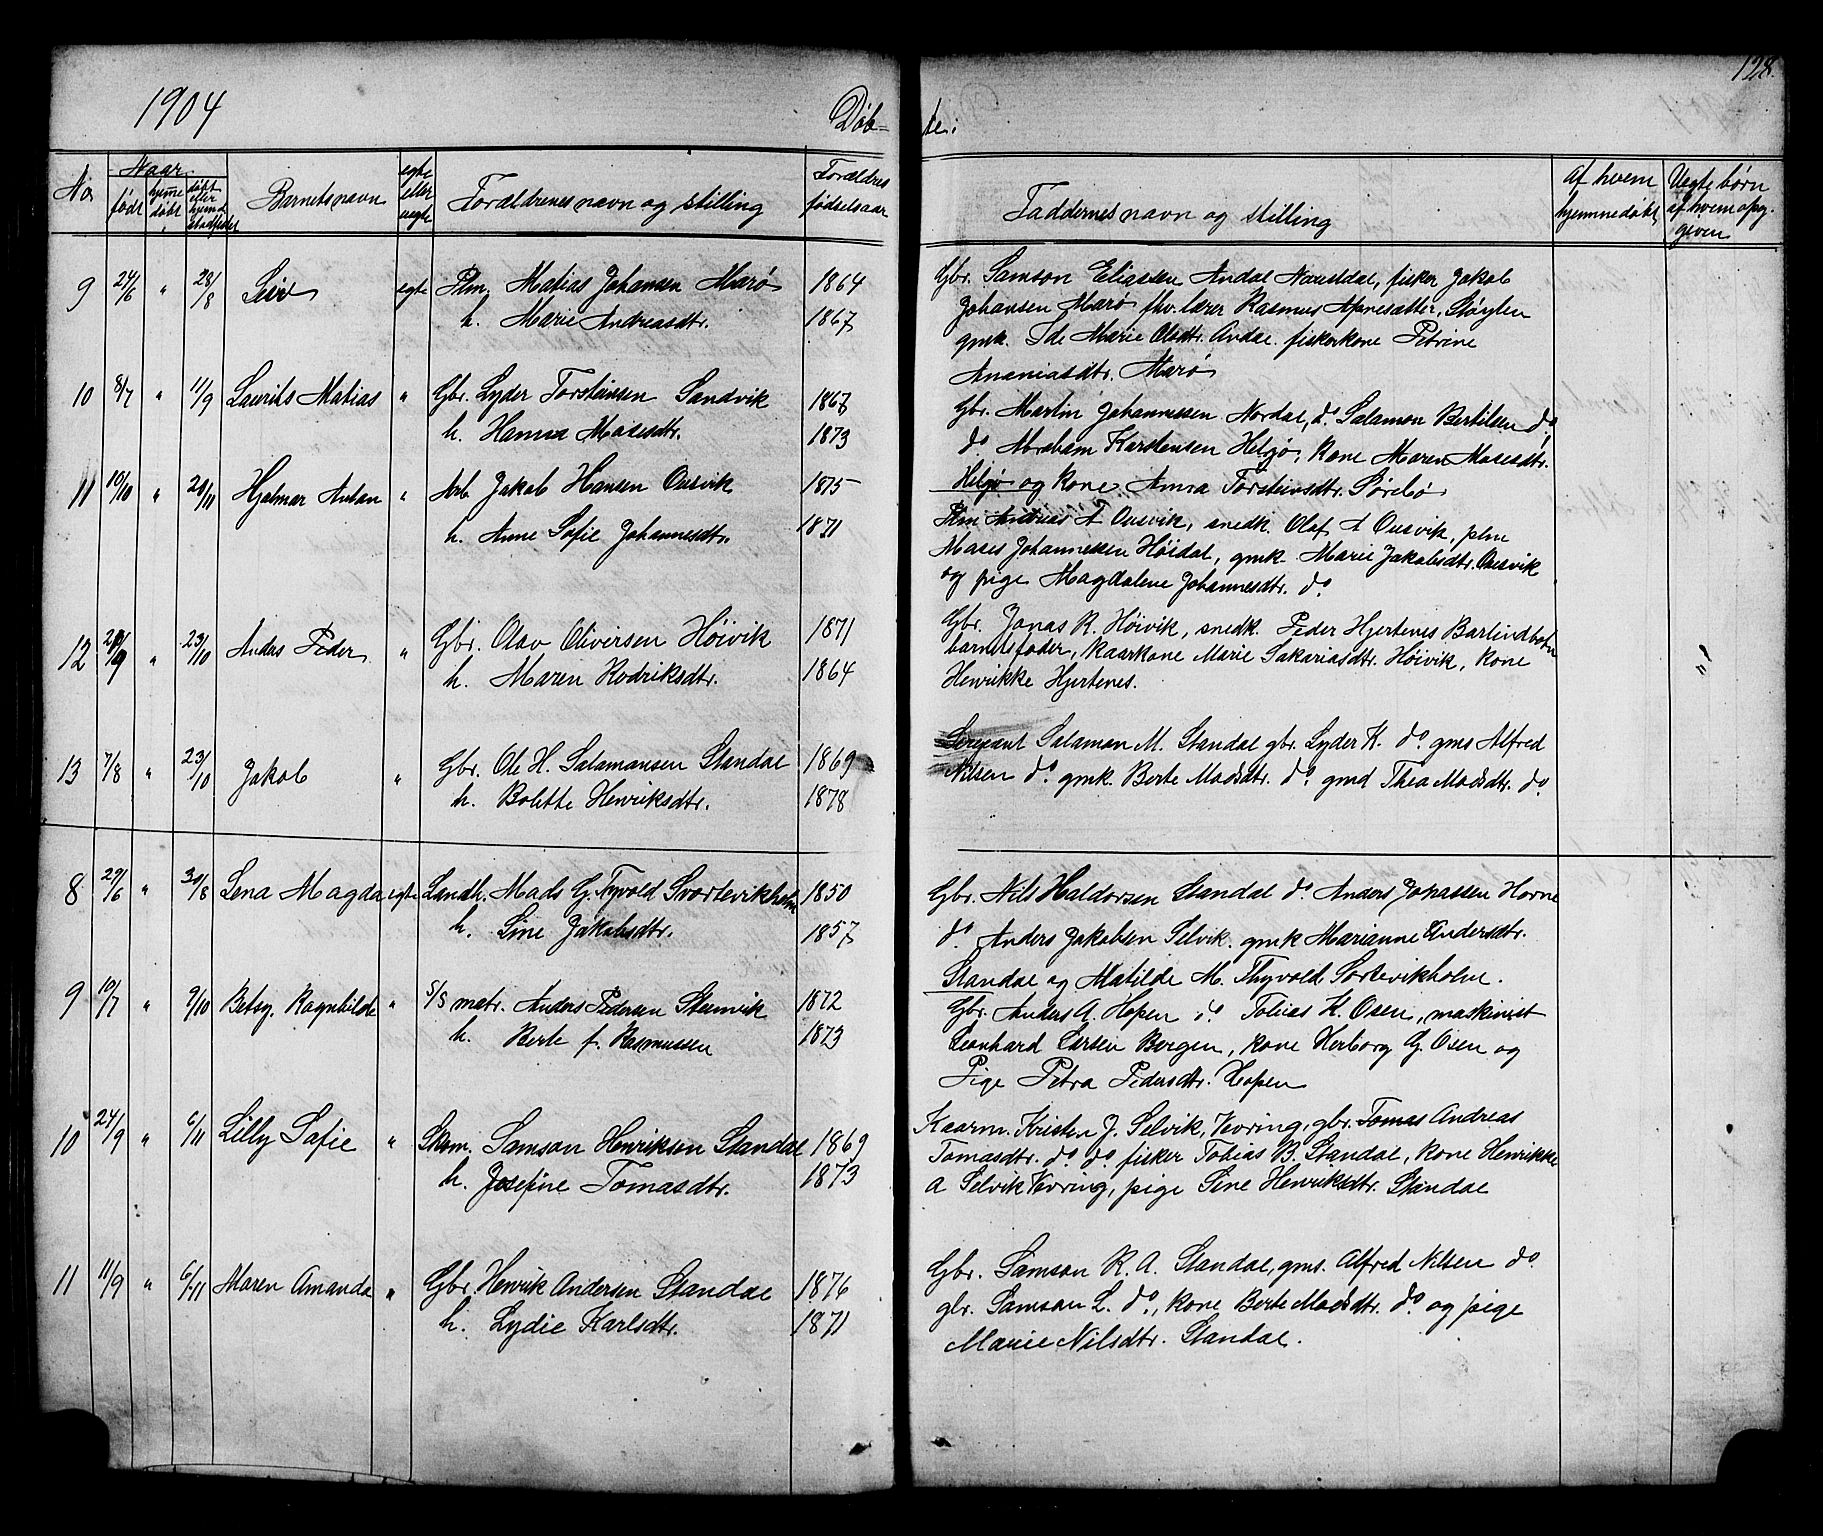 128.
1904
Døb=
te.
No
Naar
født
hjemme døbt
døbt eller hjemd. stadfestet
Barnets navn
egte eller uegte
Forældrenes navn og stilling
Forældres fødselsaar
Faddernes navn og stilling
Af hvem hjemmedøbt
Uegte børn af hvem opgiven
9 24/6 " 28/8 Siri egte Plm. Matias Johansen Marø 1864
h. Marie Andreasdtr. 1867
Gbr. Samson Eliassen Andal Naustdal, fisker Jakob
Johansen Marø fhv. lærer Rasmus Apnesætter, Støylen
gmk. Ide Marie Olsdtr. Andal. fiskerkone Petrine
Ananiasdtr. Marø
10 8/7 " 11/9 Laurits Matias " Gbr. Lyder Torsteinsen Sandvik 1867
h. Hanna Mosesdtr. 1873
Gbr. Martin Johannessen Nordal, do. Salamon Bertilsen do.
do Abraham Karstensen Helgø, Kone Maren Mosesdtr.
Helgø og Kone Anna Torsteinsdtr. Sørebø
11 10/10 " 20/11 Hjalmar Antan " Arb. Jakob Hansen Ousvik 1875
h. Anne Sofie Johannesdtr. 1871
Plm Andreas A Ousvik, snedk. Olaf A Ousvik, plm
Moses Johannessen Høidal, gmk. Marie Jakobsdtr. Ousvik
og pige Magdalene Johannesdtr. do.
12 /9 " 23/10 Anders Peder " Gbr. Olav Oliversen Høivik 1871
h. Maren Rodriksdtr. 1864
Gbr. Jonas R. Høivik, snedk. Peder Hjertenes Barlindbotn
barnets fader, Kaarkone Marie Sakariasdtr. Høivik, Kone
Henrikke Hjertenes.
"
13 7/8 " 23/10 Jakob " Gbr. Ole H. Salamonsen Standal 1869
h. Bolette Henriksdtr. 1878
Sergeant Salamon M. Standal gbr. Lyder K. do. gms Alfred
Nilsen do. gmk. Berte Madsdtr. do. gmd Thea Madsdtr. do.
8 29/6 " 30/8 Lena Magda egte Landh. Mads G. Tyvold Svortevikholm 1850
h. Sine Jakobsdtr. 1857
Gbr. Nils Haldorsen Standal do. Anders Johassen Horne
do. Anders Jakobsen Selvik. gmk Marianne Andersdtr.
Standal og Matilde M. Thyvold Sortevikholm.
9 10/7 " 9/10 Betsy Ragnhilde " S/S matr. Anders Pedersen Stenvik 1872
h. Berte f. Rasmussen 1873
Gbr. Anders A. Hopen do. Tobias K. Osen, maskinist
Leonhard Larsen Bergen, Kone Herborg G. Osen og
Pige Petra Pedersdtr. Hopen
10 24/9 " 6/11 Lilly Sofie " Skm. Samson Henriksen Standal 1869
h. Josefine Tomasdtr. 1873
Kaarm. Kristen J. Selvik, Vevring, gbr. Tomas Andreas
Tomasdtr. do. do. fisker Tobias B. Standal, Kone Henrikke
A Selvik Vevring, pige Sine Henriksdtr. Standal
11 11/9 " 6/11 Maren Amanda " Gbr. Henrik Andersen Standal 1876
h. Lydie Karlsdtr. 1871
Gbr. Samson R. A. Standal, gms. Alfred Nilsen do.
gbr. Samson L. do., Kone Berte Madsdtr. do og pige
Marie Nilsdtr. Standal.